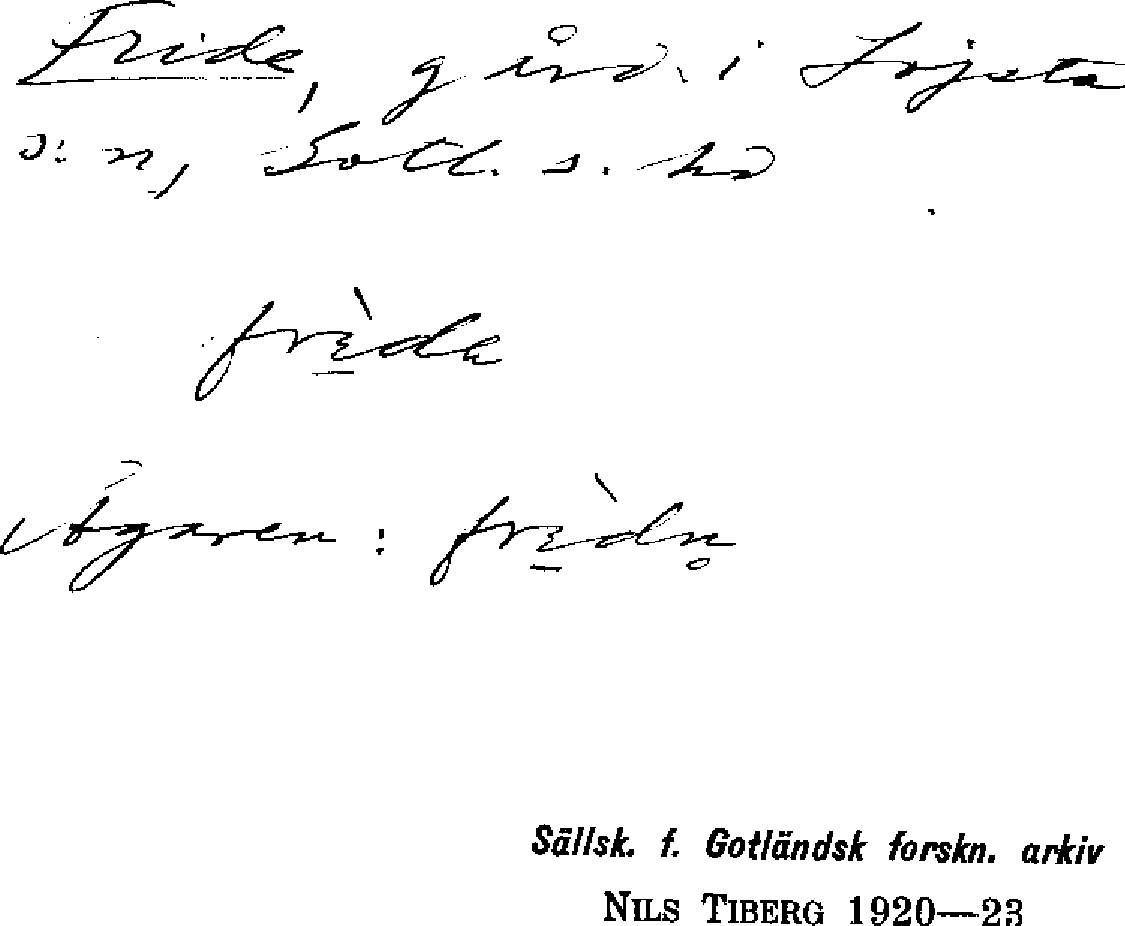 Fride, gård i Lojsta
s:n, Gotl. s. hd
frìde
Ägaren: frìdn̥
Sällsk. f. Gotländsk forskn. arkiv
NILS TIBERG 1920—23